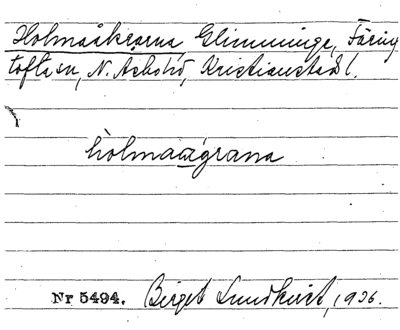 Holmaåkrarna, Glimminge, Färing
tofta sn, N. Åsbo hd, Kristianstads l.
hòlmaa̲grana
Nr 5494. Birget Lundkvist, 1936.